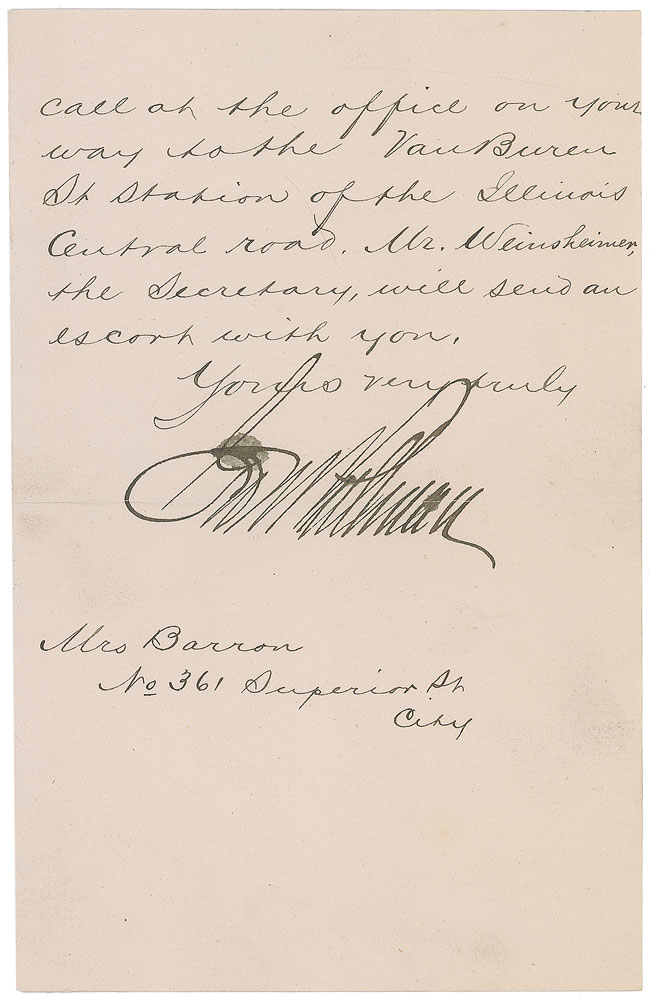 call at the office on your
way to the Van Buren
St Station of the Illinois
Central road. Mr. Weinsheimer,
the Secretary, will send an
escort with you.
Yours very truly
Geo M Pullman
Mrs Barron
No 361 Superior St
City